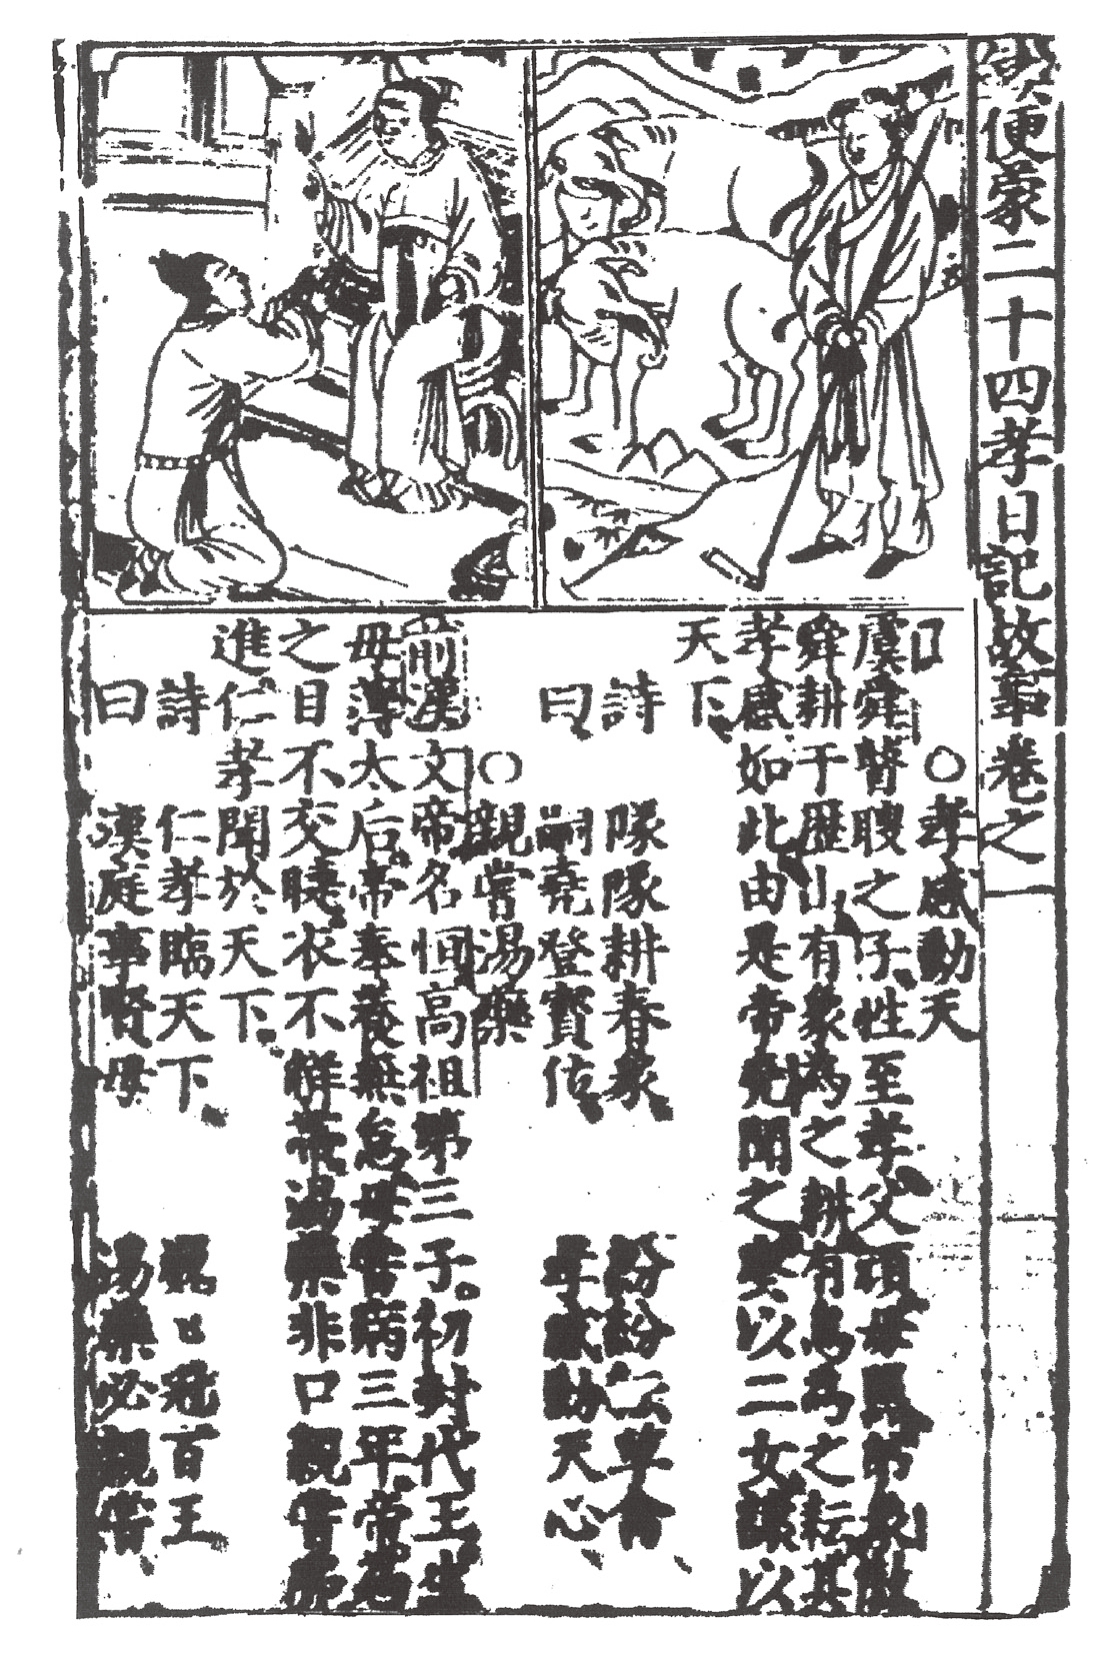 便蒙二十四孝日記故事卷之一
○孝感動天
虞舜瞽瞍之子性至孝父頑母嚚弟象傲
舜耕于歷山有象為之耕有鳥為之耘其
孝感如此由是帝堯聞之妻以二女讓以
天下
詩 隊隊耕春象 紛紛耘草禽
曰 嗣堯登寶位 孝感動天心
○親嘗湯藥
前漢文帝名恒高祖第三子初封代王生
母薄太后帝奉養無怠母嘗病三年帝為
之目不交睫衣不解帶湯藥非口親嘗弗
進仁孝聞於天下
詩 仁孝臨天下 巍巍冠百王
曰 漢庭事賢母 湯藥必親嘗